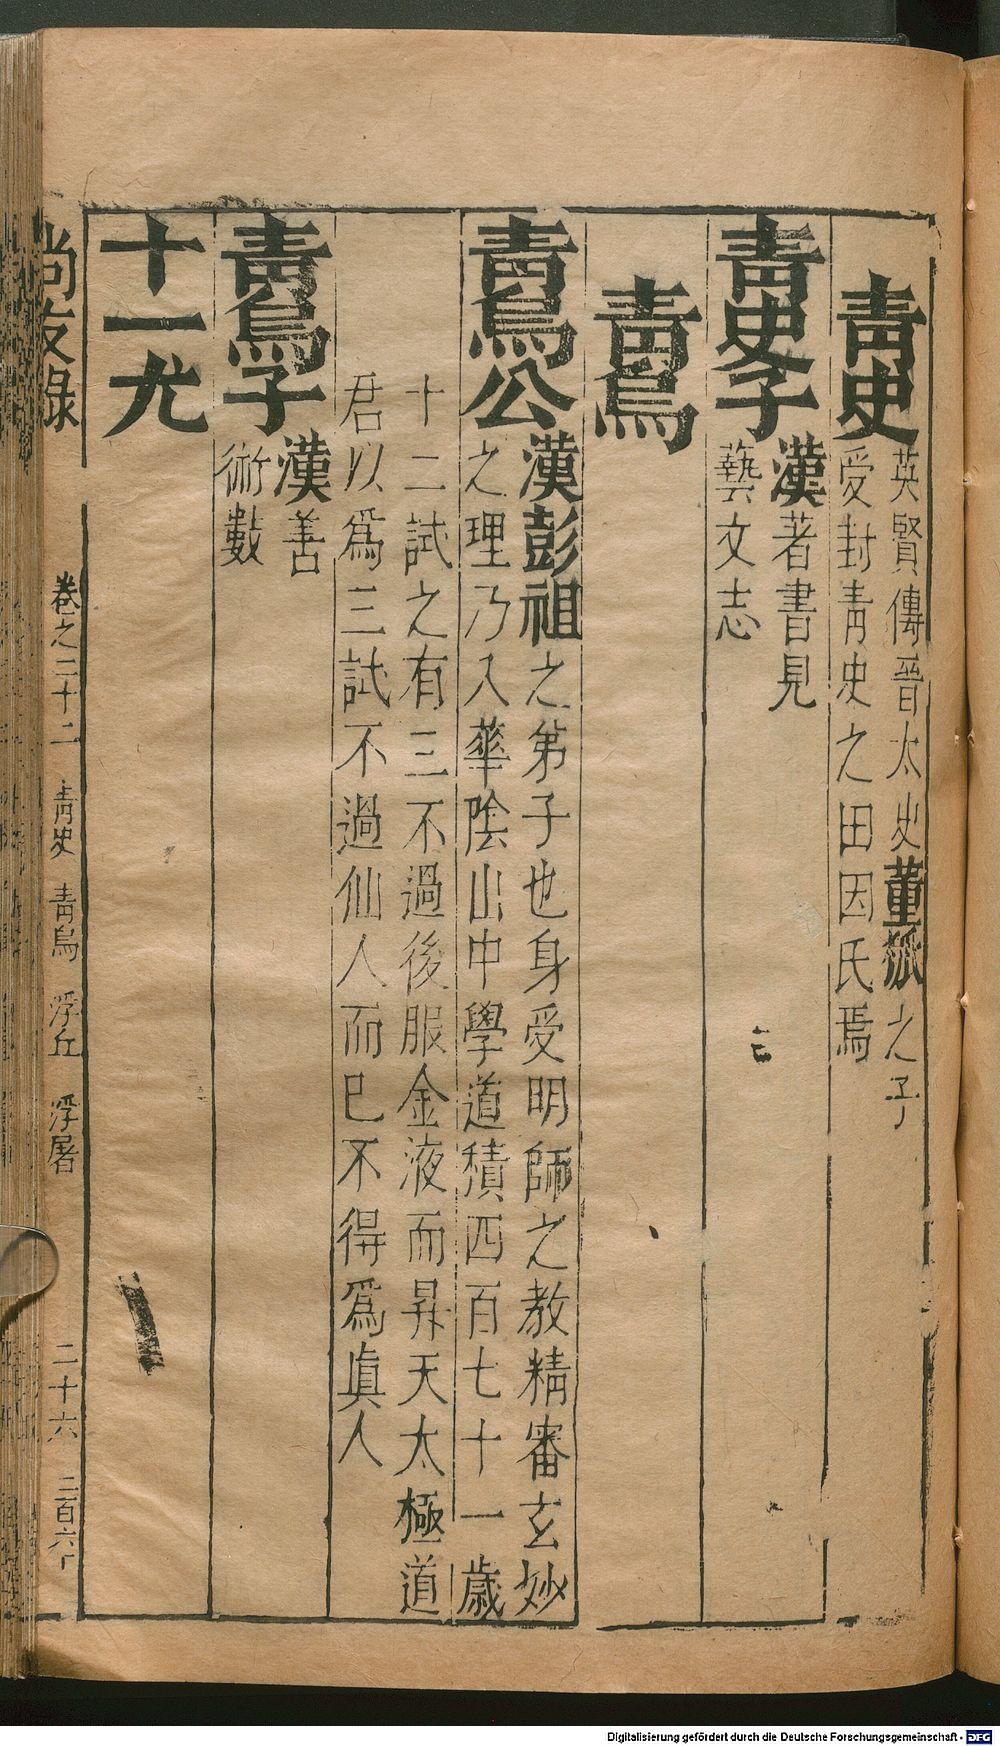 青史
英賢傳晉太史董狐之子
受封青史之田因氏焉
青史子
漢著書見
藝文志
青烏
青烏公
漢彭祖之弟子也身受明師之教精審玄妙
之理乃入華陰山中學道積四百七十一歲
十二試之有三不過後服金液而昇天太極道
君以爲三試不過仙人而已不得爲眞人
青烏子
漢善
術數
十一尤
尚友錄
卷之二十二 青史 青烏 浮丘 浮屠
二十六
Digitalisierung gefördert durch die Deutsche Forschungsgemeinschaft - DFG